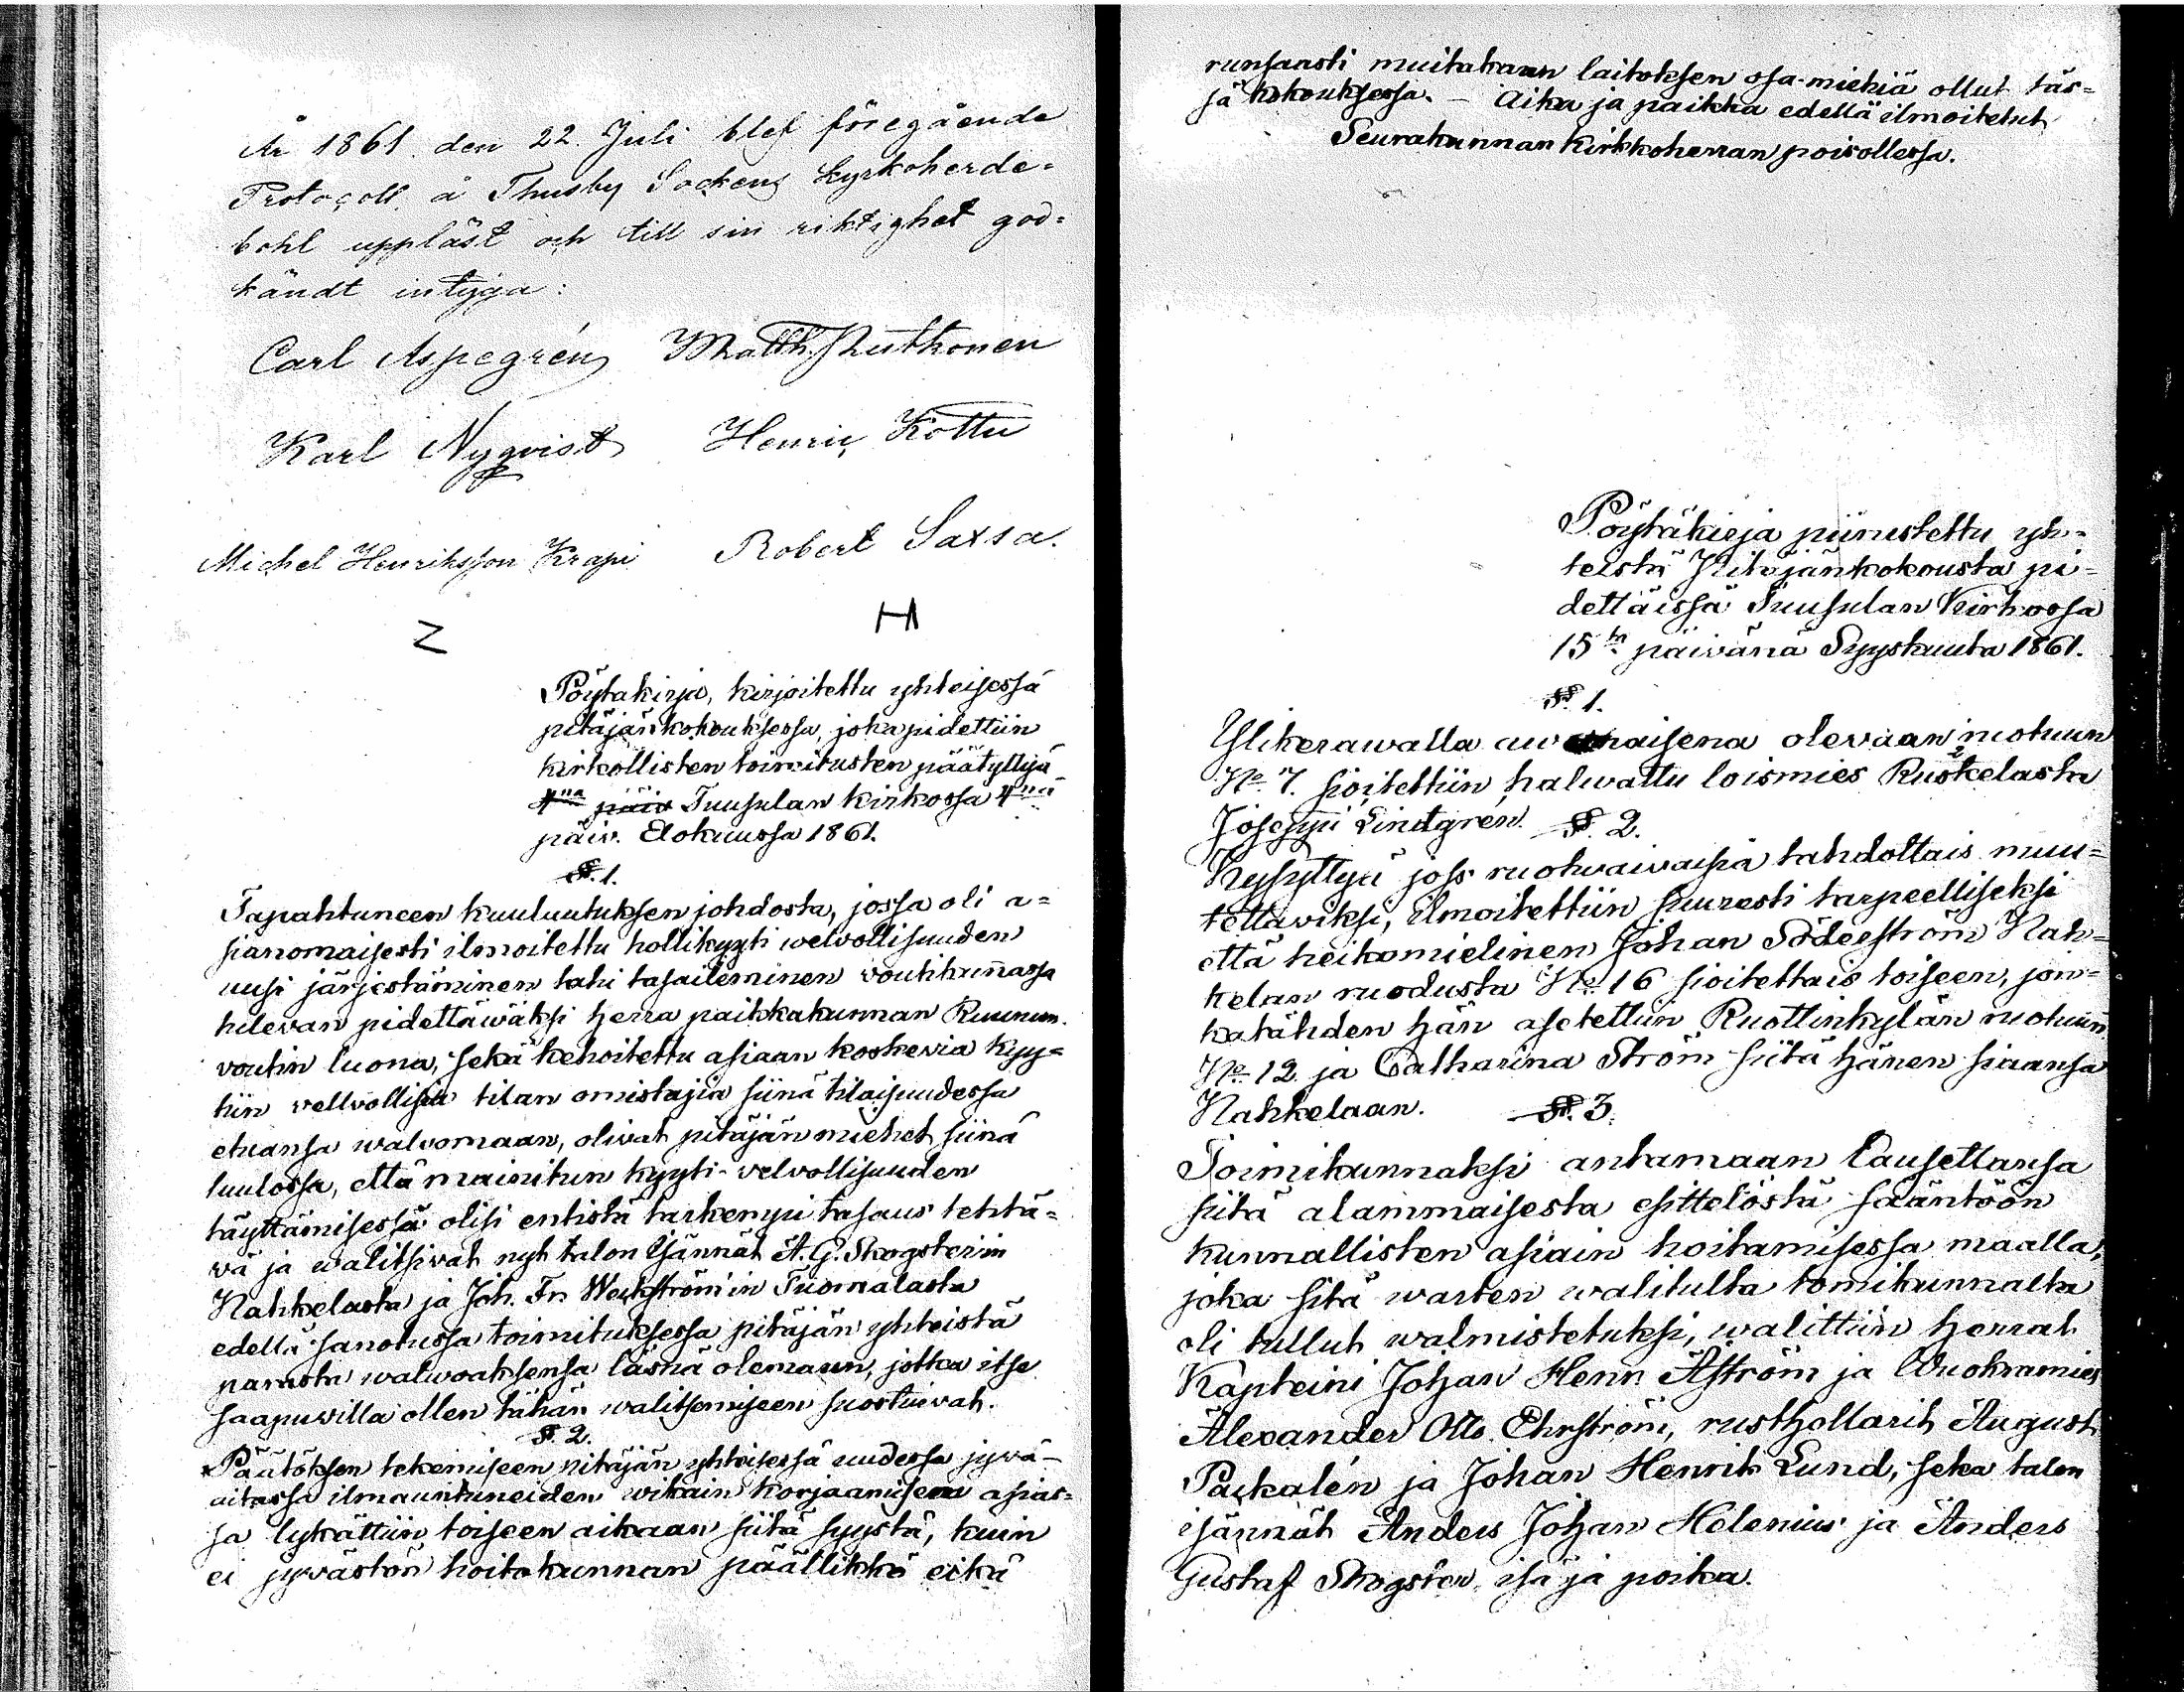 År 1861 den 22. Juli blef föregående
Protocoll å Thusby Sockens Kyrkoherde=
bohl uppläst och till sin riktighet god=
kändt intyga:
Carl Aspegrén Matth. Ruthonen
Karl Nyqvist Henric Kottu
Michel Henriksson Krapi Robert Saxsa.
Pöytäkirja, kirjoitettu yhteisessä
pitäjänkokouksessa, joka pidettiin
kirkollisten toimitusten päätyttyä
4nä päiv Tuusulan kirkossa 4nä
päiv. Elokuussa 1861.
§. 1.
Tapahtuneen kuuluutuksen johdosta, jossa oli a=
sianomaisesti ilmoitettu hollikyyti welvollisuuden
uusi järjestäminen tahi tasaileminen voutikunnassa
tulevan pidettäwäksi herra paikkakunnan Ruunun
voutin luona, sekä kehoitettu asiaan koskevia kyy=
tiin vellvollisia tilan omistajia siinä tilaisuudessa
etuansa walvomaan, olivat pitäjän miehet siinä
luulossa, että mainitun kyyti-velvollisuuden
täyttämisessä olisi entistä tarkempi tasaus tehtä=
vä ja walitsivat nyt talon Isännät A. G. Skogsterin
Nahkelasta ja Joh. Fr. Weckström'in Tuomalasta
edellä sanotussa toimituksessa pitäjän yhteistä
parasta walwoaksensa läsnä olemaan, jotka itse
saapuvilla ollen tähän walitsemiseen suostuivat.
§. 2.
Päätöksen tekemiseen pitäjän yhteisessä uudessa jyvä-
aitassa ilmauntuneiden wikain korjaamisen asias=
sa lykättiin toiseen aikaan siitä syystä, kuin
ei jyvästön hoitokunnan päällikkö eikä
runsaasti muitakaan laitoksen osa-miehiä ollut täs=
sä kokouksessa. - Aika ja paikka edellä ilmoitetut
Seurakunnan Kirkkoherran poisollessa.
Pöytäkirja piirustettu yh=
teistä Pitäjänkokousta pi=
dettäissä Tuusulan Kirkossa
15ta päivänä Syyskuuta 1861.
§. 1.
Ylikerawalla awonaisena olevaan ruotuun
No 7. sioitettiin halwattu loismies Ruskelasta
Joseppi Lindgrén. §. 2.
Kysyttyä joss ruotuvaivaisia tahdottais muu=
tettaviksi, ilmoitettiin suuresti tarpeelliseksi
että heikomielinen Johan Söderström Nah=
kelan ruodusta No 16 sioitettais toiseen, jon=
katähden hän asetettiin Ruottinkylän ruotuun
No 12 ja Catharina Ström siitä hänen siaansa
Nahkelaan. §. 3.
Toimikunnaksi antamaan Lausettansa
siitä alammaisesta esittelöstä sääntöön
kunnallisten asiain hoitamisessa maalla,
joka sitä warten walitulta tomikunnalta
oli tullut walmistetuksi, walittiin herrat
Kapteini Johan Henr. Åström ja Wuokramies
Alexander Otto Ehrström, rusthollarit August
Packalén ja Johan Henrik Lund, seka talon
isännät Anders Johan Helenius ja Anders
Gustaf Skogster, isä ja poika.